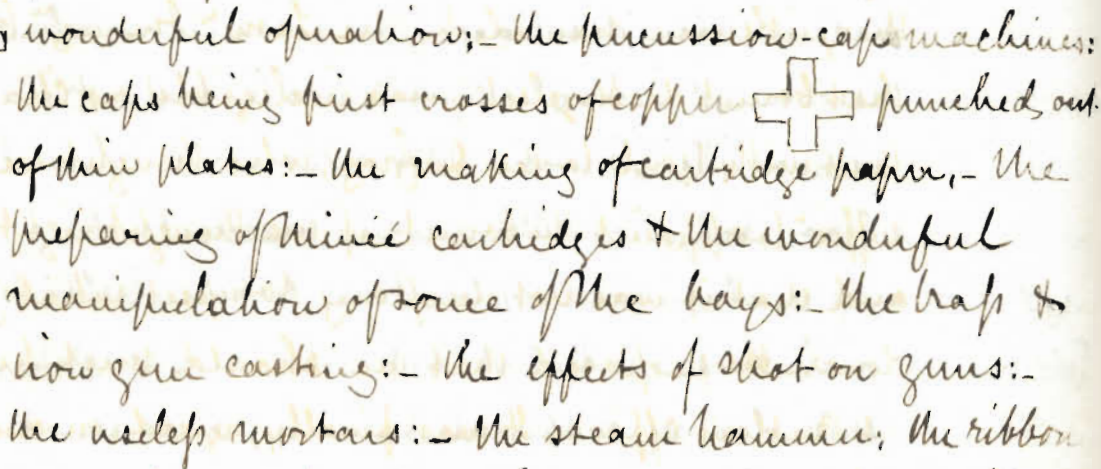 wonderful operation:– the percussion-cap machines:
the caps being first crosses of copper punched out
of thin plates:– the making of cartridge paper,– the
preparing of Minié cartridges & the wonderful
manipulation of some of the boys:– the brass &
iron gun casting:– the effects of shot on guns:–
the useless mortars:– the steam hammer; the ribbon